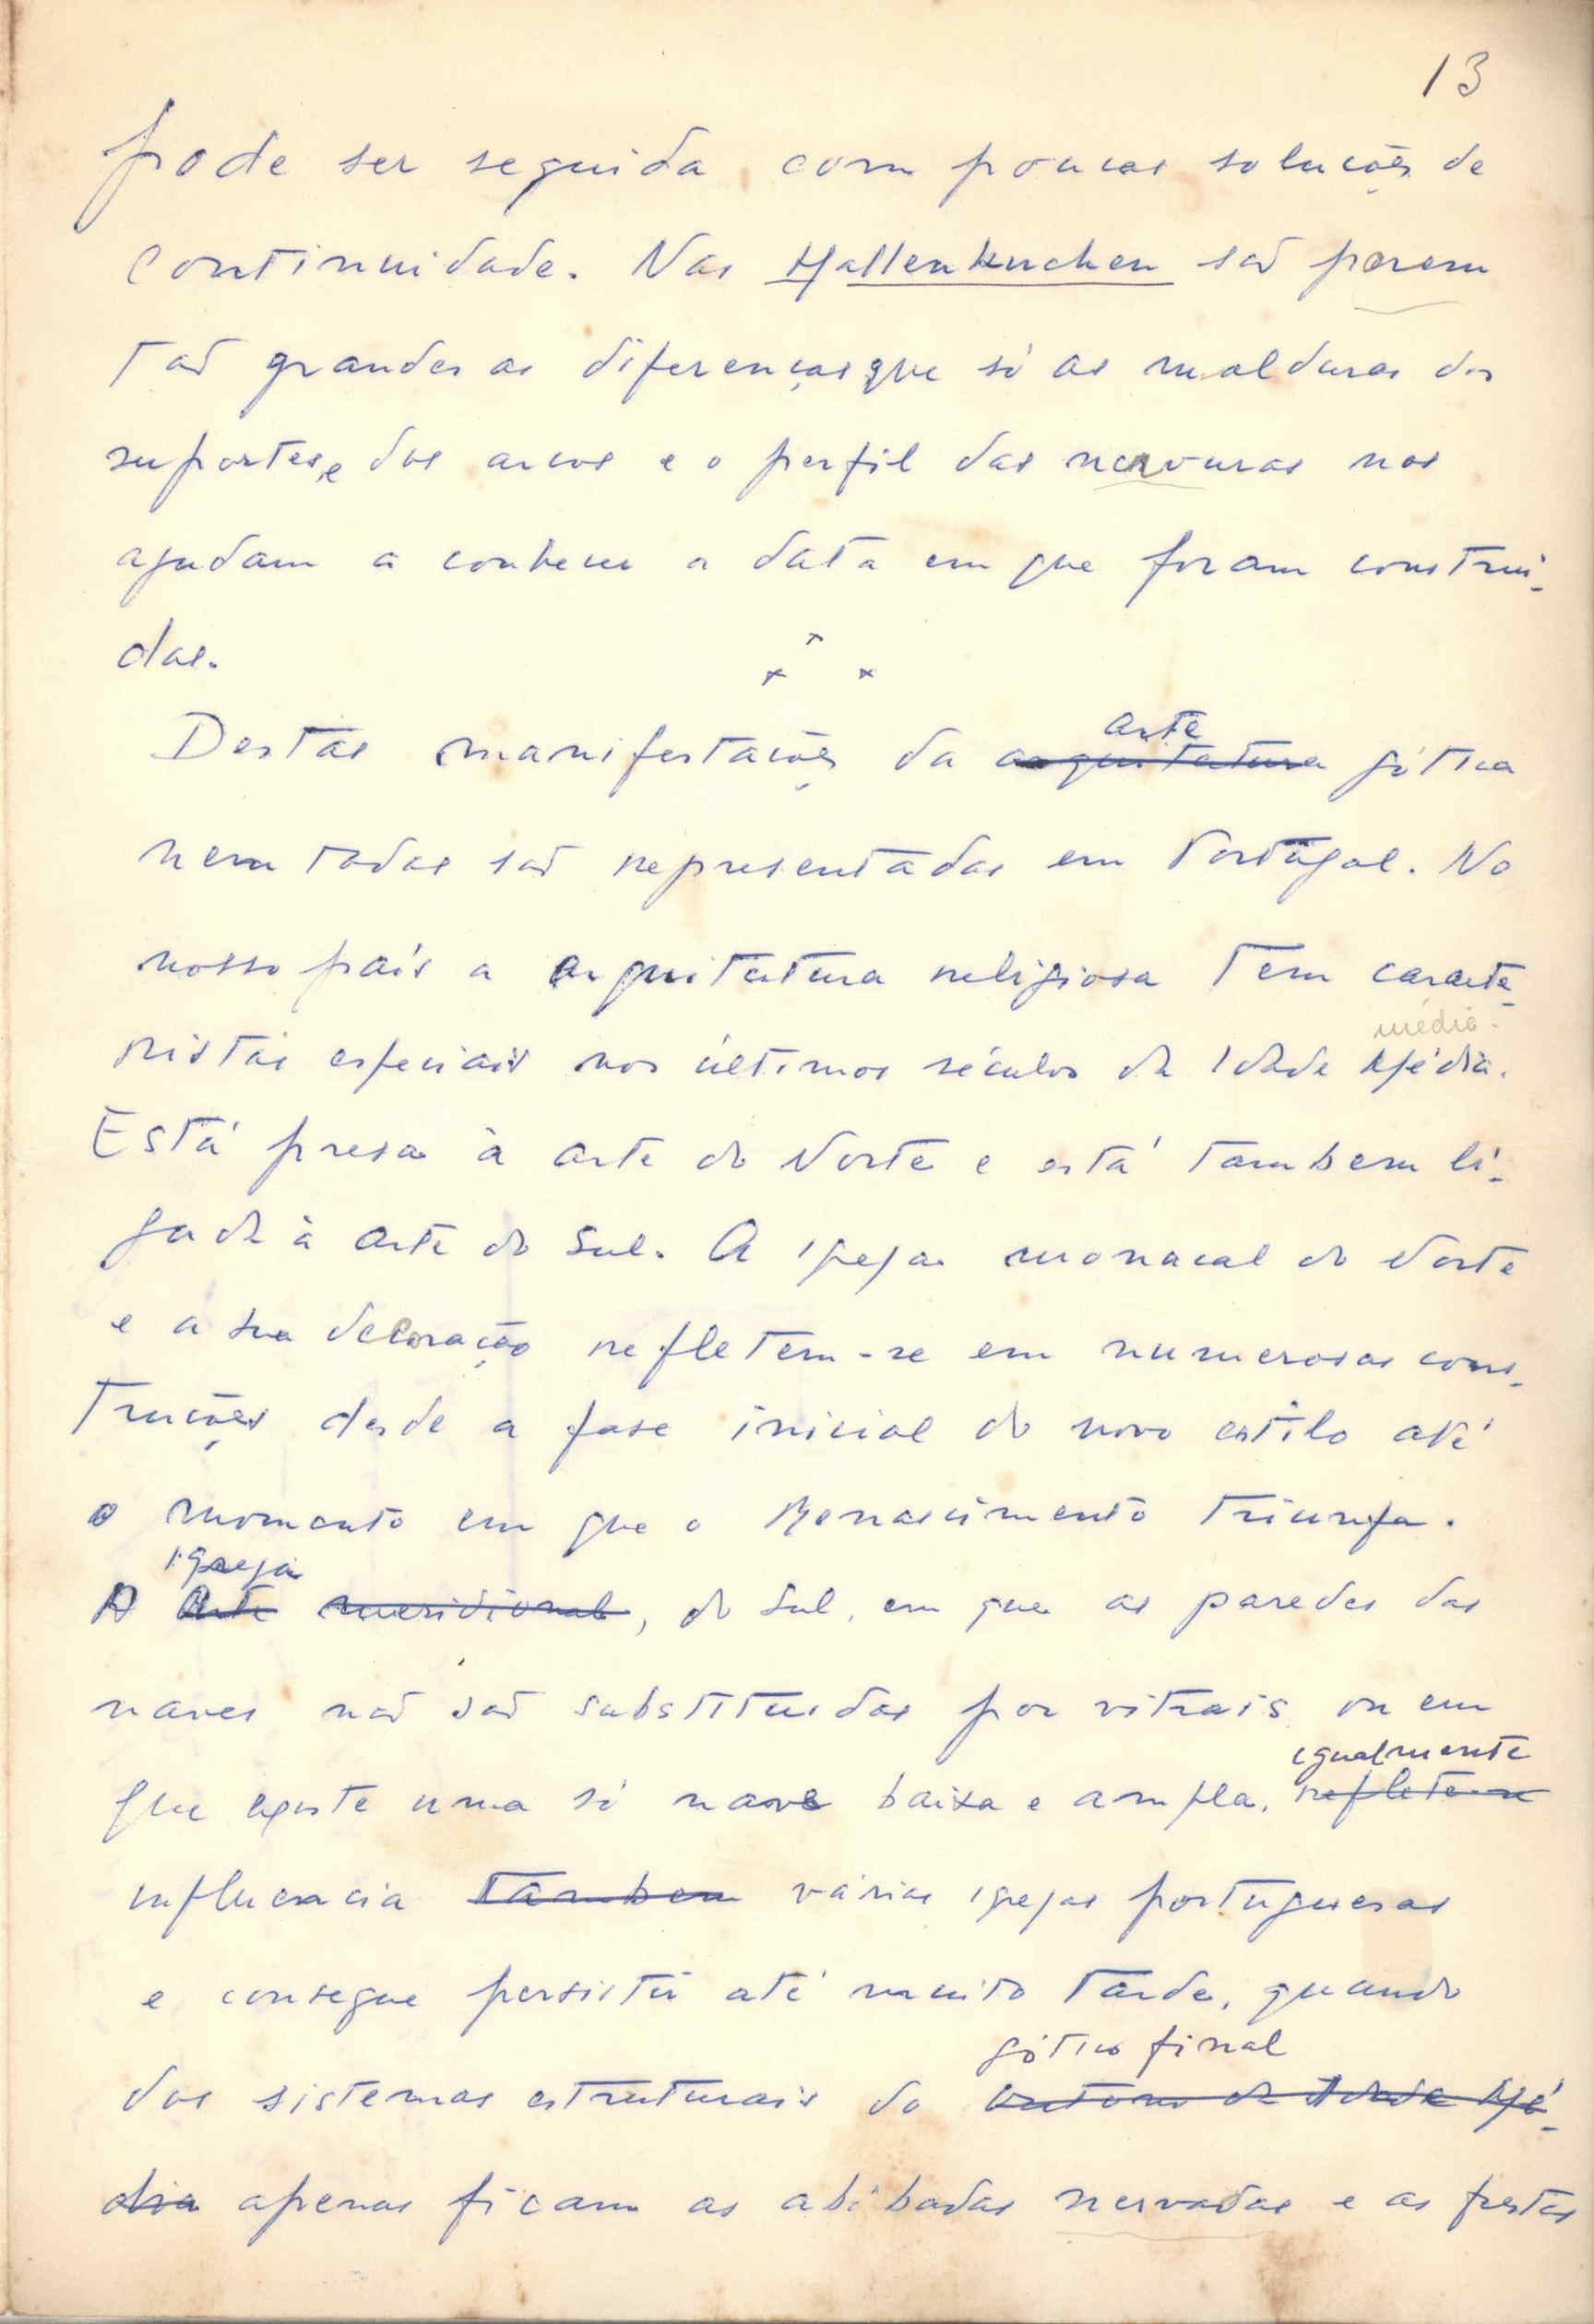 13
pode ser seguida com poucas soluções de
continuidade. Nas Hallenkuchen são porem
tão grandes as diferenças que só as molduras dos
suportes, e dos arcos e o perfil das nervuras nos
ajudam a conhecer a data em que foram construi-
das.
x x x
Destas manifestações da arquitectura gótica
arte
nem todas são representadas em Portugal. No
nosso país a arquitectura religiosa tem caracte-
risticas especiais nos últimos séculos da Idade Média.
média.
Está presa à arte do Norte e está tambem li-
gada à arte do Sul. A igreja monacal do Norte
e a sua decoração refletem-se em numerosas cons-
truções desde a fase inicial do novo estilo até
o momento em que o Renascimento triunfa.
igreja
A Arte meridional, do Sul, em que as paredes das
naves não são substituidas por vitrais ou em
igualmente
que existe uma só nave baixa e ampla, reflete-se
influencia tambem várias igrejas portuguesas
e consegue persistir até muito tarde, quando
gótico final
dos sistemas estruturais do outono da Idade Mé-
dia apenas ficam as abóbadas nervadas e as frestas